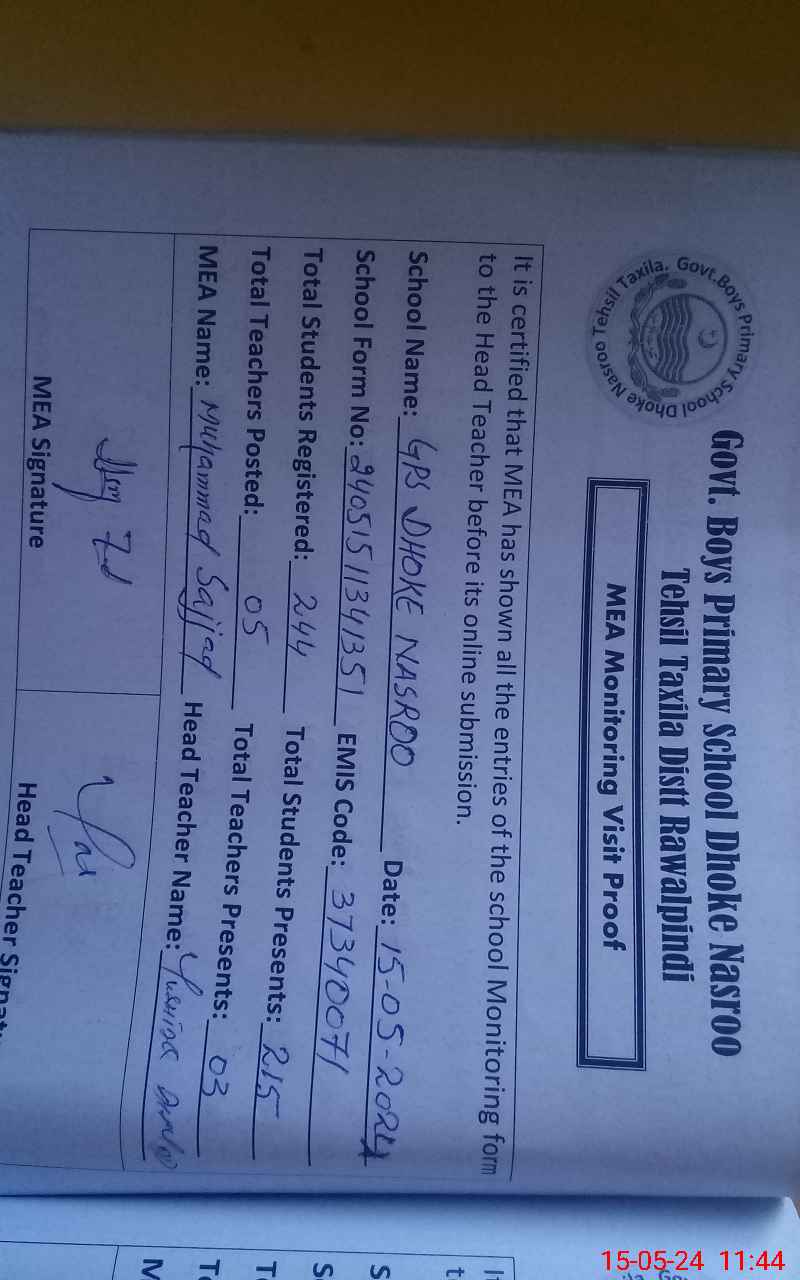 Govt. Boys Primary School Dhoke Nasroo
Tehsil Taxila Distt Rawalpindi
Govt.Boys Primary School Dhoke Nasroo Tehsil Taxila.
MEA Monitoring Visit Proof
It is certified that MEA has shown all the entries of the school Monitoring form
to the Head Teacher before its online submission.
School Name: GPS DHOKE NASROO Date: 15-05-2024
School Form No: 24051511341351 EMIS Code: 37340071
Total Students Registered: 244 Total Students Presents: 215
Total Teachers Posted: 05 Total Teachers Presents: 03
MEA Name: Muhammad Sajjad Head Teacher Name:
MEA Signature Head Teacher Signat
15-05-24 11:44